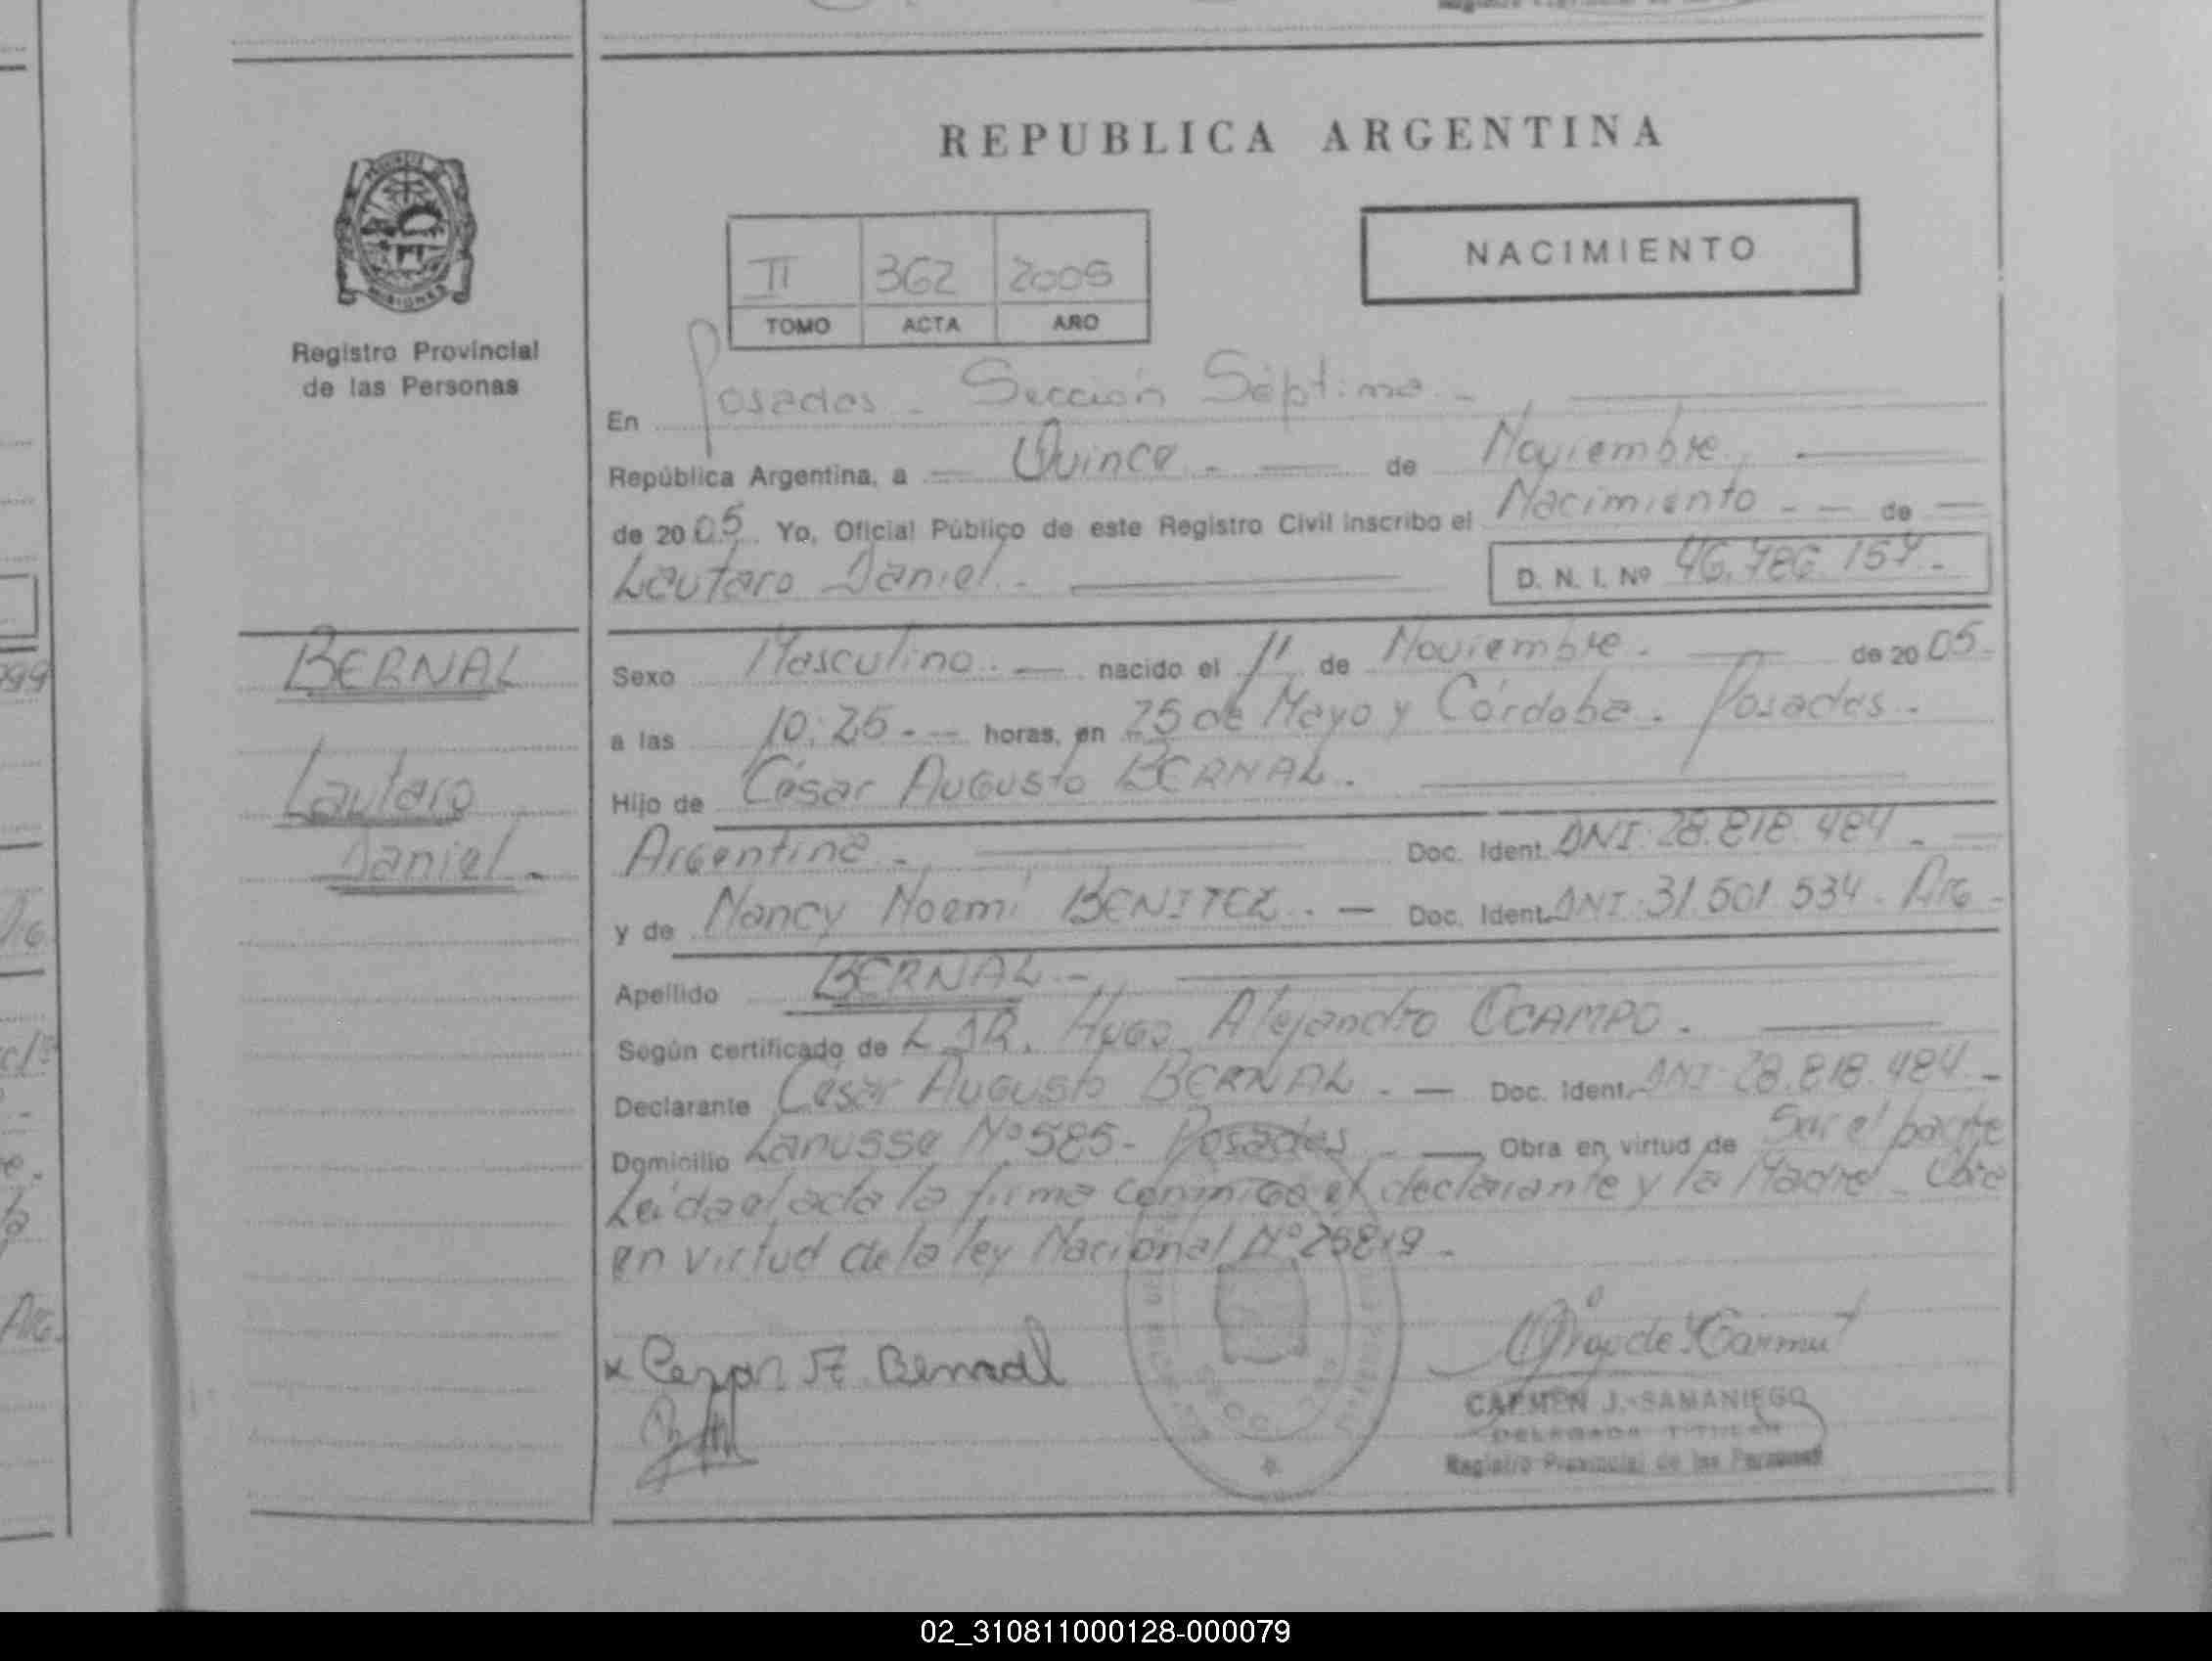 REPUBLICA ARGENTINA
NACIMIENTO
II 362 2005
TOMO ACTA AÑO
Registro Provincial
de las Personas
En Posadas - Sección Séptima -
República Argentina, a Quince - de Noviembre
de 2005. Yo, Oficial Público de este Registro Civil inscribo el Nacimiento - - de
Lautaro Daniel. - D. N. I. Nº
BERNAL
Lautaro
Daniel. -
Sexo Masculino. - nacido el 11 de Noviembre. de 2005.
a las 10:25. - - horas, en 25 de Mayo y Córdoba. Posadas.
Hijo de César Augusto BERNAL.
Argentina - Doc. Ident. DNI: 28.818.484 -
y de Nancy Noemí BENITEZ. - Doc. Ident. DNI: 31.501.534. Arg -
Apellido BERNAL -
Según certificado de DR. Hugo Alejandro OCAMPO.
Declarante César Augusto BERNAL. - Doc. Ident. DNI: 28.818.484. -
Domicilio Lanusse Nº 585 - Posadas - Obra en virtud de Ser el padre
Leida el acta la firma conmigo el declarante y la Madre -
en virtud de la ley Nacional Nº
x Cezar A. Bernal
CARMEN J. SAMANIEGO
DELEGADA TITULAR
Registro Provincial de las Personas
02_310811000128-000079